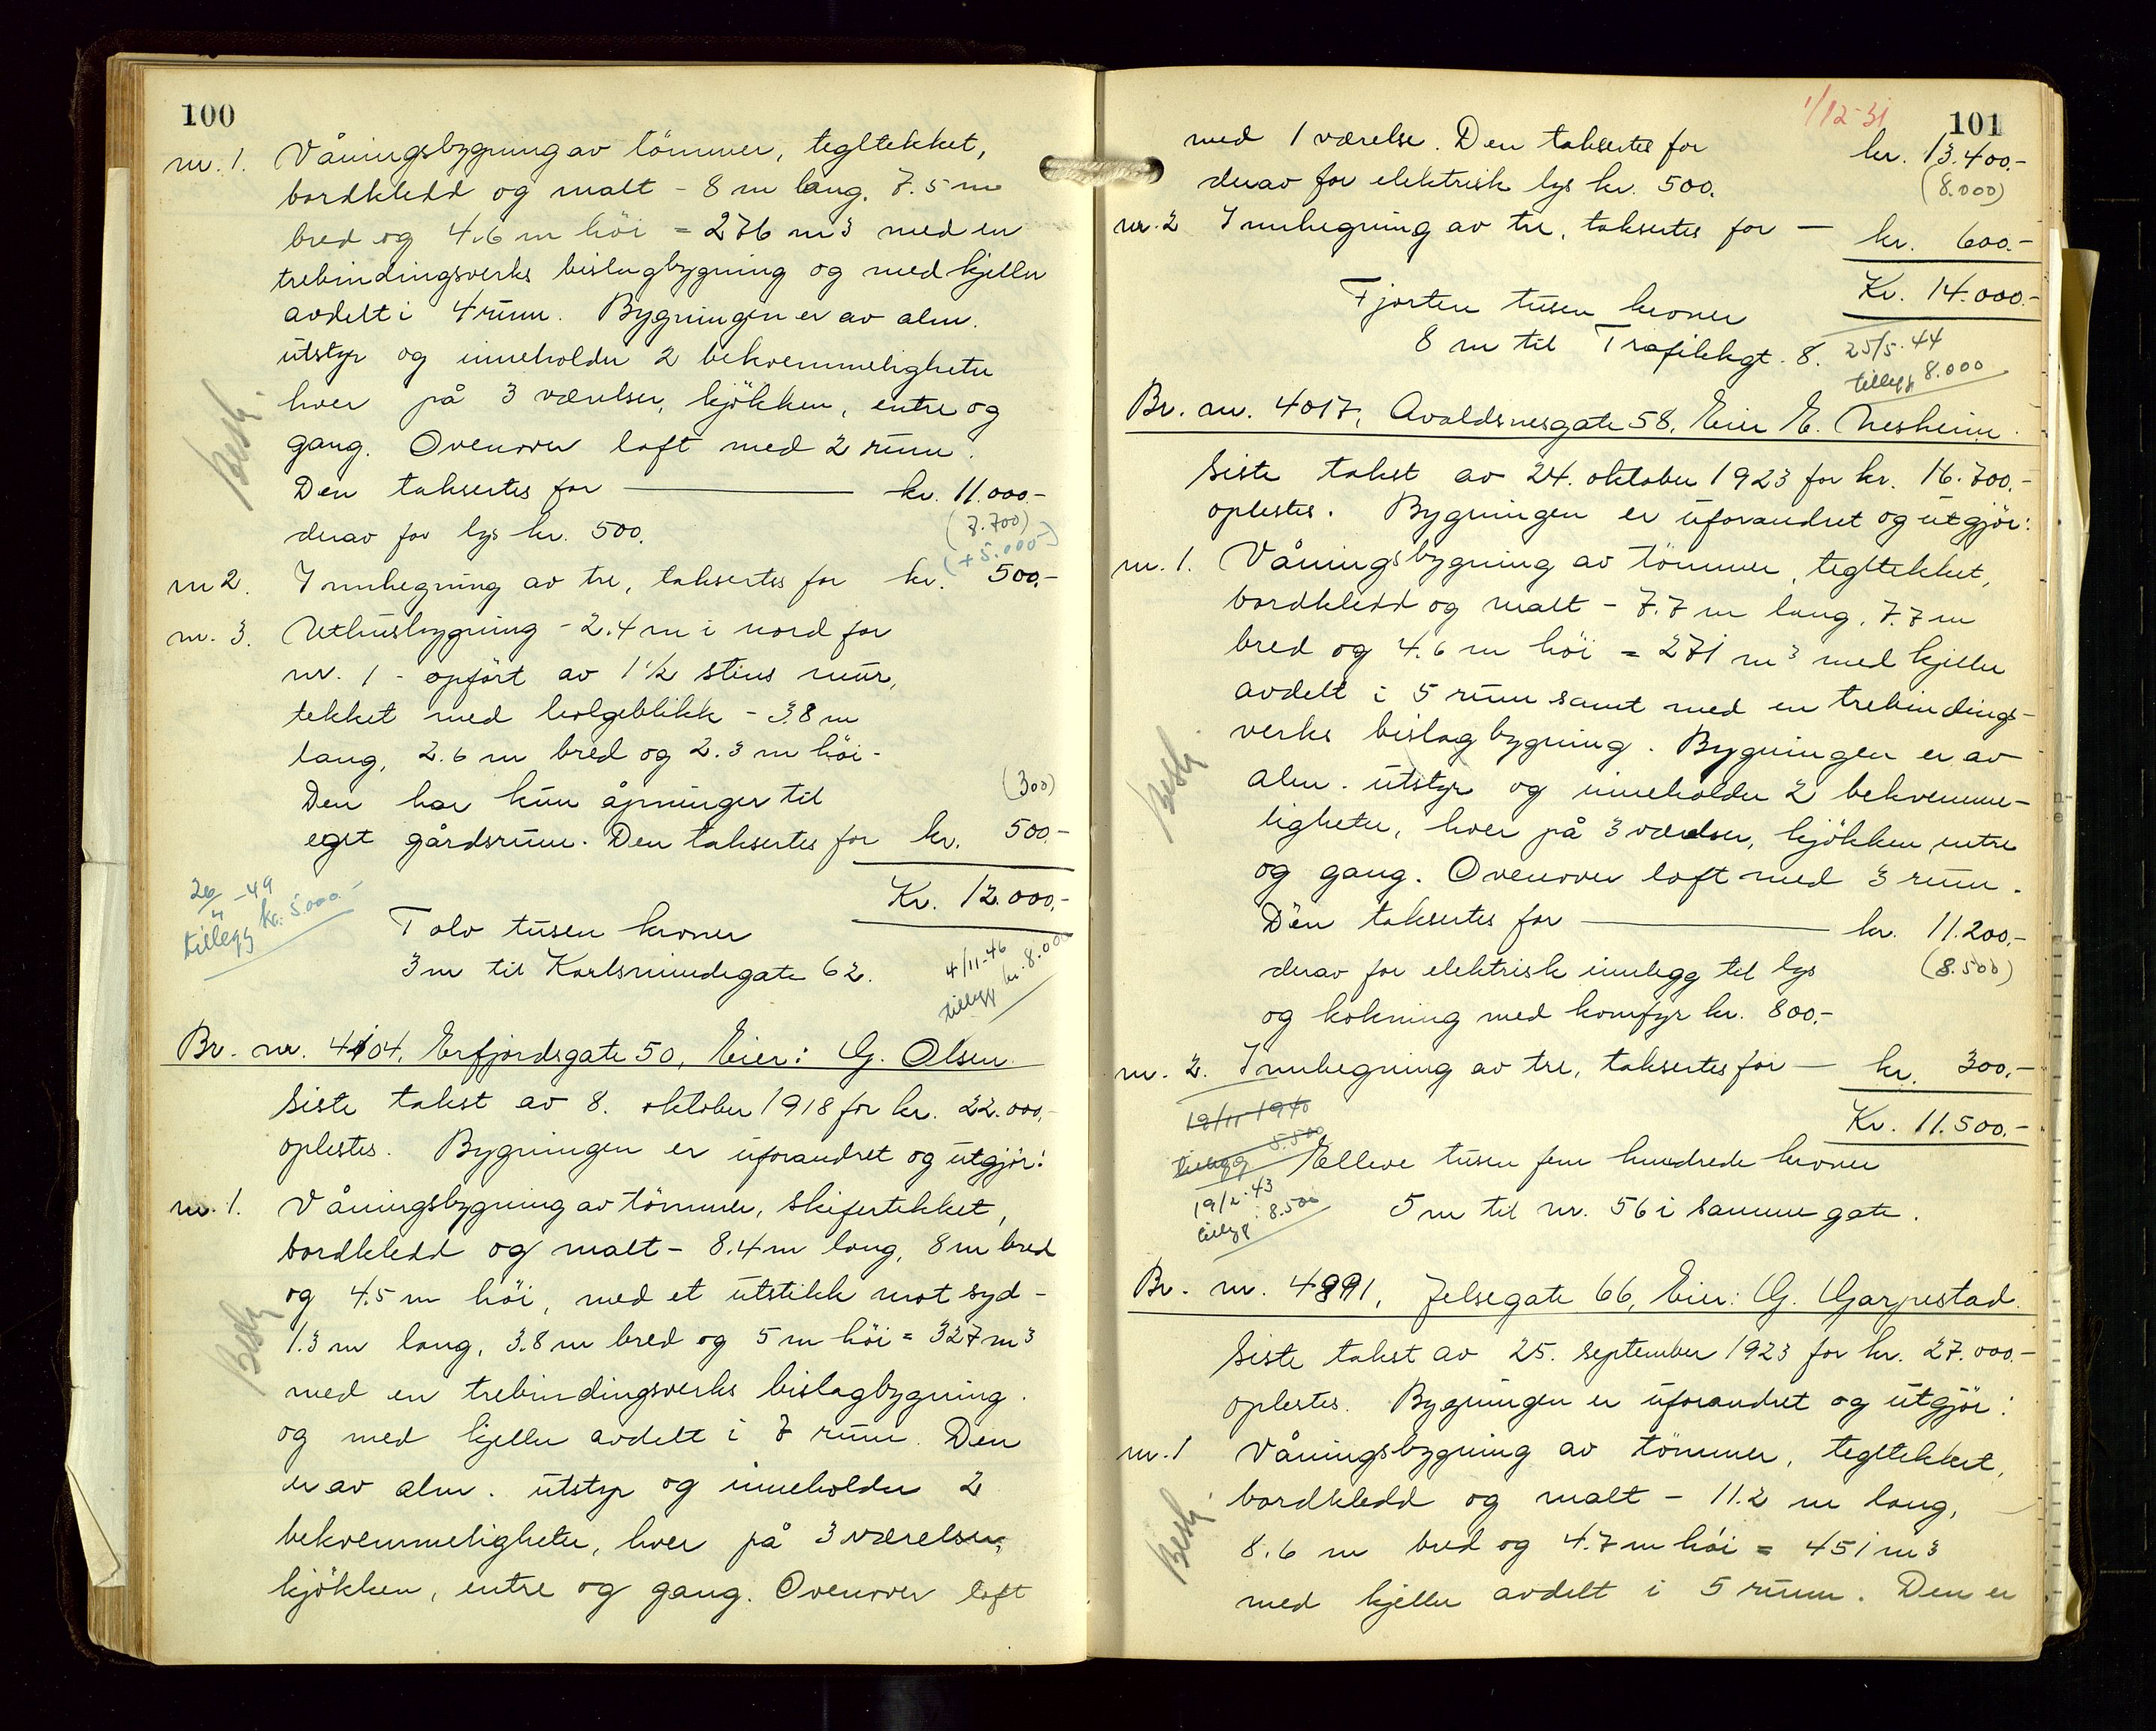 100
nr. 1. Våningsbygning av tömmer, tegltekket,
bordkledd og malt - 8 m lang, 7.5 m
bred og 4.6 m höi = 276 m3 med en
trebindingsverks bislagbygning og med kjeller
avdelt i 4 rum. Bygningen er av alm.
utstyr og inneholder 2 bekvemmeligheter
hver på 3 værelser, kjökken, entre og
gang. Ovenover loft med 2 rum.
Besk.
Den takseres for — kr. 11.000.-
(7.700)
derav for lys kr. 500.
(+5.000-)
nr 2. Innhegning av tre, takseres for kr. 500.-
nr. 3. Uthusbygning - 2.4 m i nord for
nr. 1 - opfört av 1 1/2 stens mur,
tekket med bolgeblikk - 3.8 m
lang, 2.6 m bred og 2.3 m höi -
Den har kun åpninger til
(300)
eget gårdsrum. Den takseres for kr. 500.-
Kr. 12.000.-
26/4-49
tillegg kr: 5.000.-
Tolv tusen kroner
3 m til Karlsmindegate 62.
4/11-46
tillegg kr. 8.000
Br. nr. 4104, Erfjordsgate 50, Eier: G. Olsen.
Siste takst av 8. oktober 1918 for kr. 22.000.-
oplestes. Bygningen er uforandret og utgjör:
nr. 1. Våningsbygning av tömmer, skifertekket,
bordkledd og malt - 8.4 m lang, 8 m bred
og 4.5 m höi, med et utstikk mot syd -
1.3 m lang, 3.8 m bred og 5 m höi = 327 m3
Besk
med en trebindingsverks bislagbygning.
og med kjeller avdelt i 7 rum. Den
er av alm. utstyr og inneholder 2
bekvemmeligheter, hver på 3 værelser,
kjökken, entre og gang. Ovenover loft
1/12-31
101
med 1 værelse. Den takseres for kr. 13.400.-
derav for elektrisk lys kr. 500.
(8.000)
nr. 2 Innhegning av tre, takseres for — kr. 600.-
Kr. 14.000.-
Fjorten tusen kroner
8 m til Trafikkgt. 8.
25/5.44
tillegg 8.000
Br. nr. 4017, Avaldsnesgate 58, Eier E. Nesheim.
Siste takst av 24. oktober 1923 for kr. 16.700.-
oplestes. Bygningen er uforandret og utgjör:
nr. 1. Våningsbygning av tömmer, tegltekket,
bordkledd og malt - 7.7 m lang, 7.7 m
bred og 4.6 m höi = 271 m3 med kjeller
avdelt i 5 rum samt med en trebindings-
verks bislagbygning. Bygningen er av
Besk.
alm. utstyr og inneholder 2 bekvemme-
ligheter, hver på 3 værelser, kjökken, entre
og gang. Ovenover loft med 3 rum.
Den takseres for — kr. 11.200.-
derav for elektrisk innlegg til lys
(8.500)
og kokning med komfyr kr. 800.-
nr. 2. Innhegning av tre, takseres for — kr. 300.-
Kr. 11.500.-
12/11 1940
tillegg 5.500
Elleve tusen fem hundrede kroner
19/2.43
tillegg: 8.500
5 m til nr. 56 i samme gate.
Br. nr. 4891, Jelsegate 66, Eier: G. Garpestad.
Siste takst av 25. september 1923 for kr. 27.000.-
oplestes. Bygningen er uforandret og utgjör:
nr. 1 Våningsbygning av tömmer, tegltekket,
bordkledd og malt - 11.2 m lang,
Besk.
8.6 m bred og 4.7 m höi = 451 m3
med kjeller avdelt i 5 rum. Den er